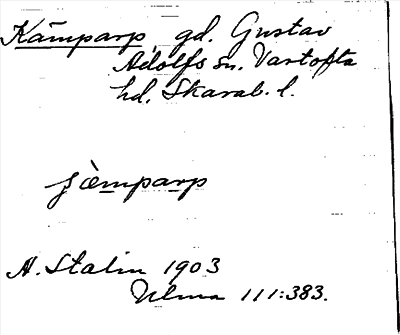 Kämparp gd. Gustav
Adolfs sn. Vartofta
hd. Skarab. l.
A. Stalin 1903
Ulma 111:383.